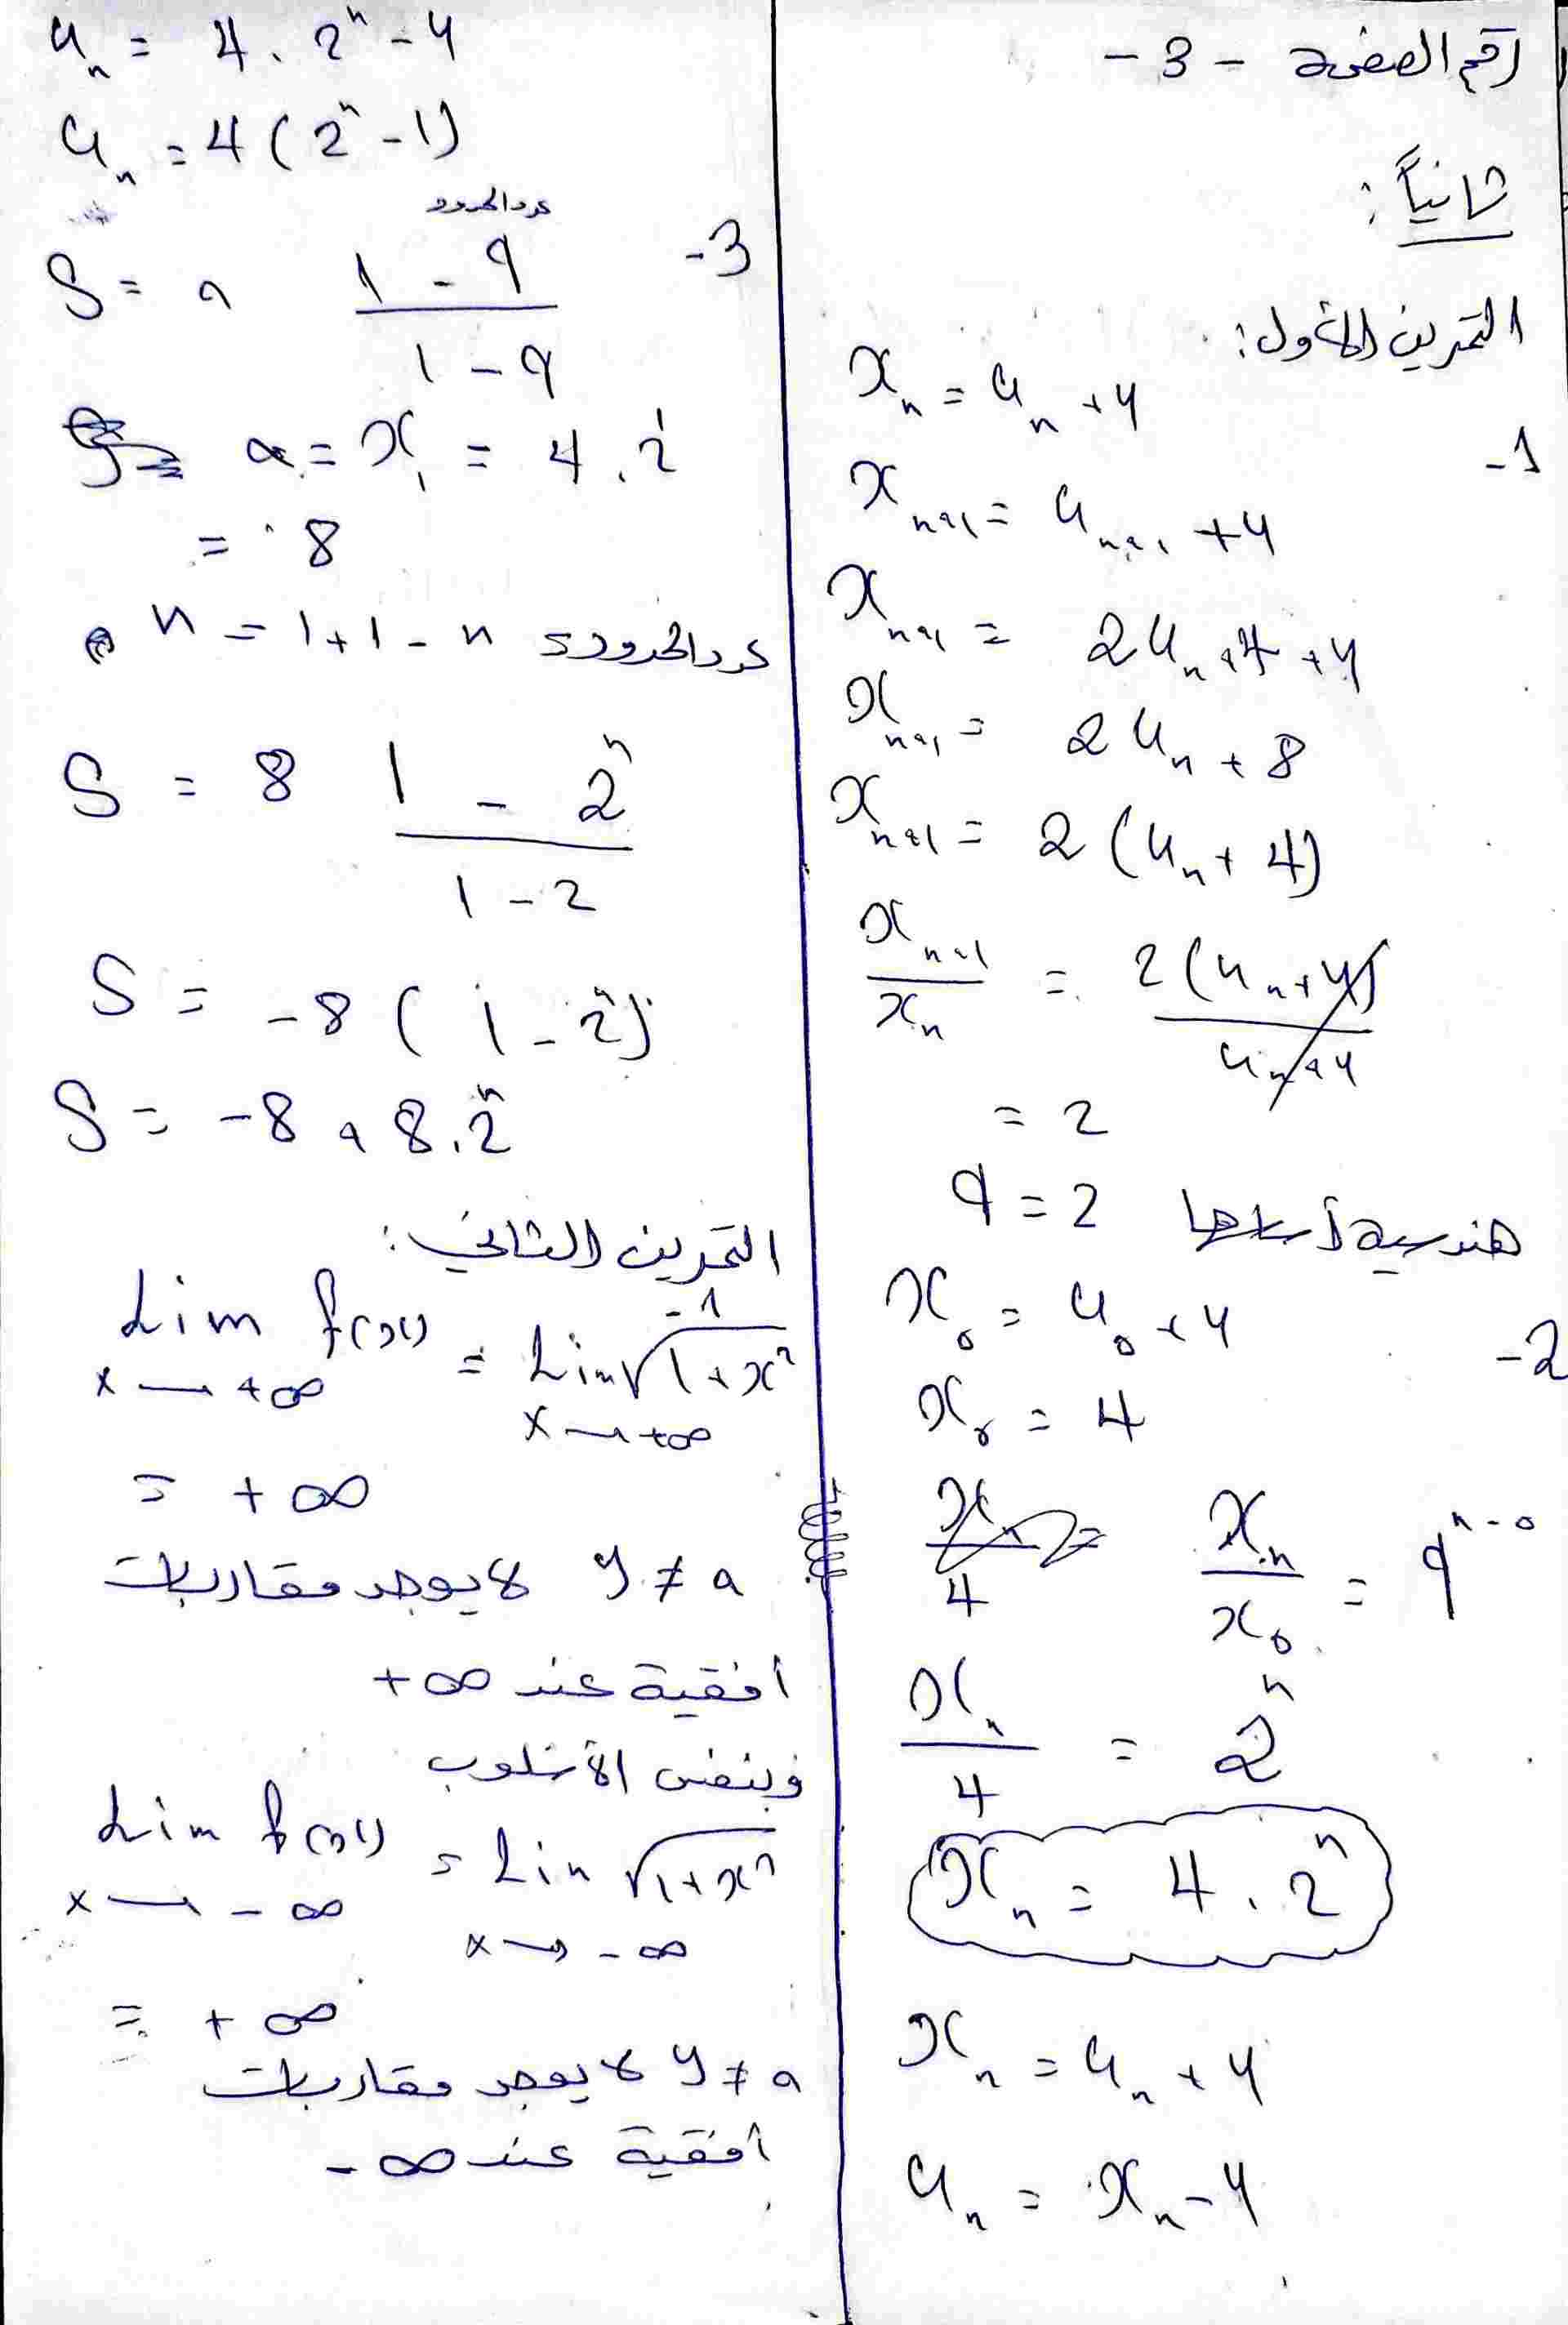 رقم الصفحة - 3 -
ثانياً:
التمرين الأول:
-1
xₙ = uₙ + 4
xₙ₊₁ = uₙ₊₁ + 4
xₙ₊₁ = 2uₙ + 4 + 4
xₙ₊₁ = 2uₙ + 8
xₙ₊₁ = 2(uₙ + 4)
xₙ₊₁ / xₙ = 2(uₙ + 4) / uₙ + 4
= 2
هندسية أساسها q = 2
-2
x₀ = u₀ + 4
x₀ = 4
xₙ / x₀ = qⁿ⁻⁰
xₙ / 4 = 2ⁿ
xₙ = 4 . 2ⁿ
xₙ = uₙ + 4
uₙ = xₙ - 4
uₙ = 4 . 2ⁿ - 4
uₙ = 4(2ⁿ - 1)
-3
عدد الحدود
S = a 1 - q / 1 - q
a = x₁ = 4 . 2¹
= 8
عدد الحدود n - 1 + 1 = n
S = 8 1 - 2ⁿ / 1 - 2
S = -8 (1 - 2ⁿ)
S = -8 + 8 . 2ⁿ
التمرين الثاني:
-1
Lim f(x) = Lim √1 + x²
x → +∞ x → +∞
= +∞
y ≠ a لا يوجد مقاربات
أفقية عند +∞
وبنفس الأسلوب
Lim f(x) = Lim √1 + x²
x → -∞ x → -∞
= +∞
y ≠ a لا يوجد مقاربات
أفقية عند -∞